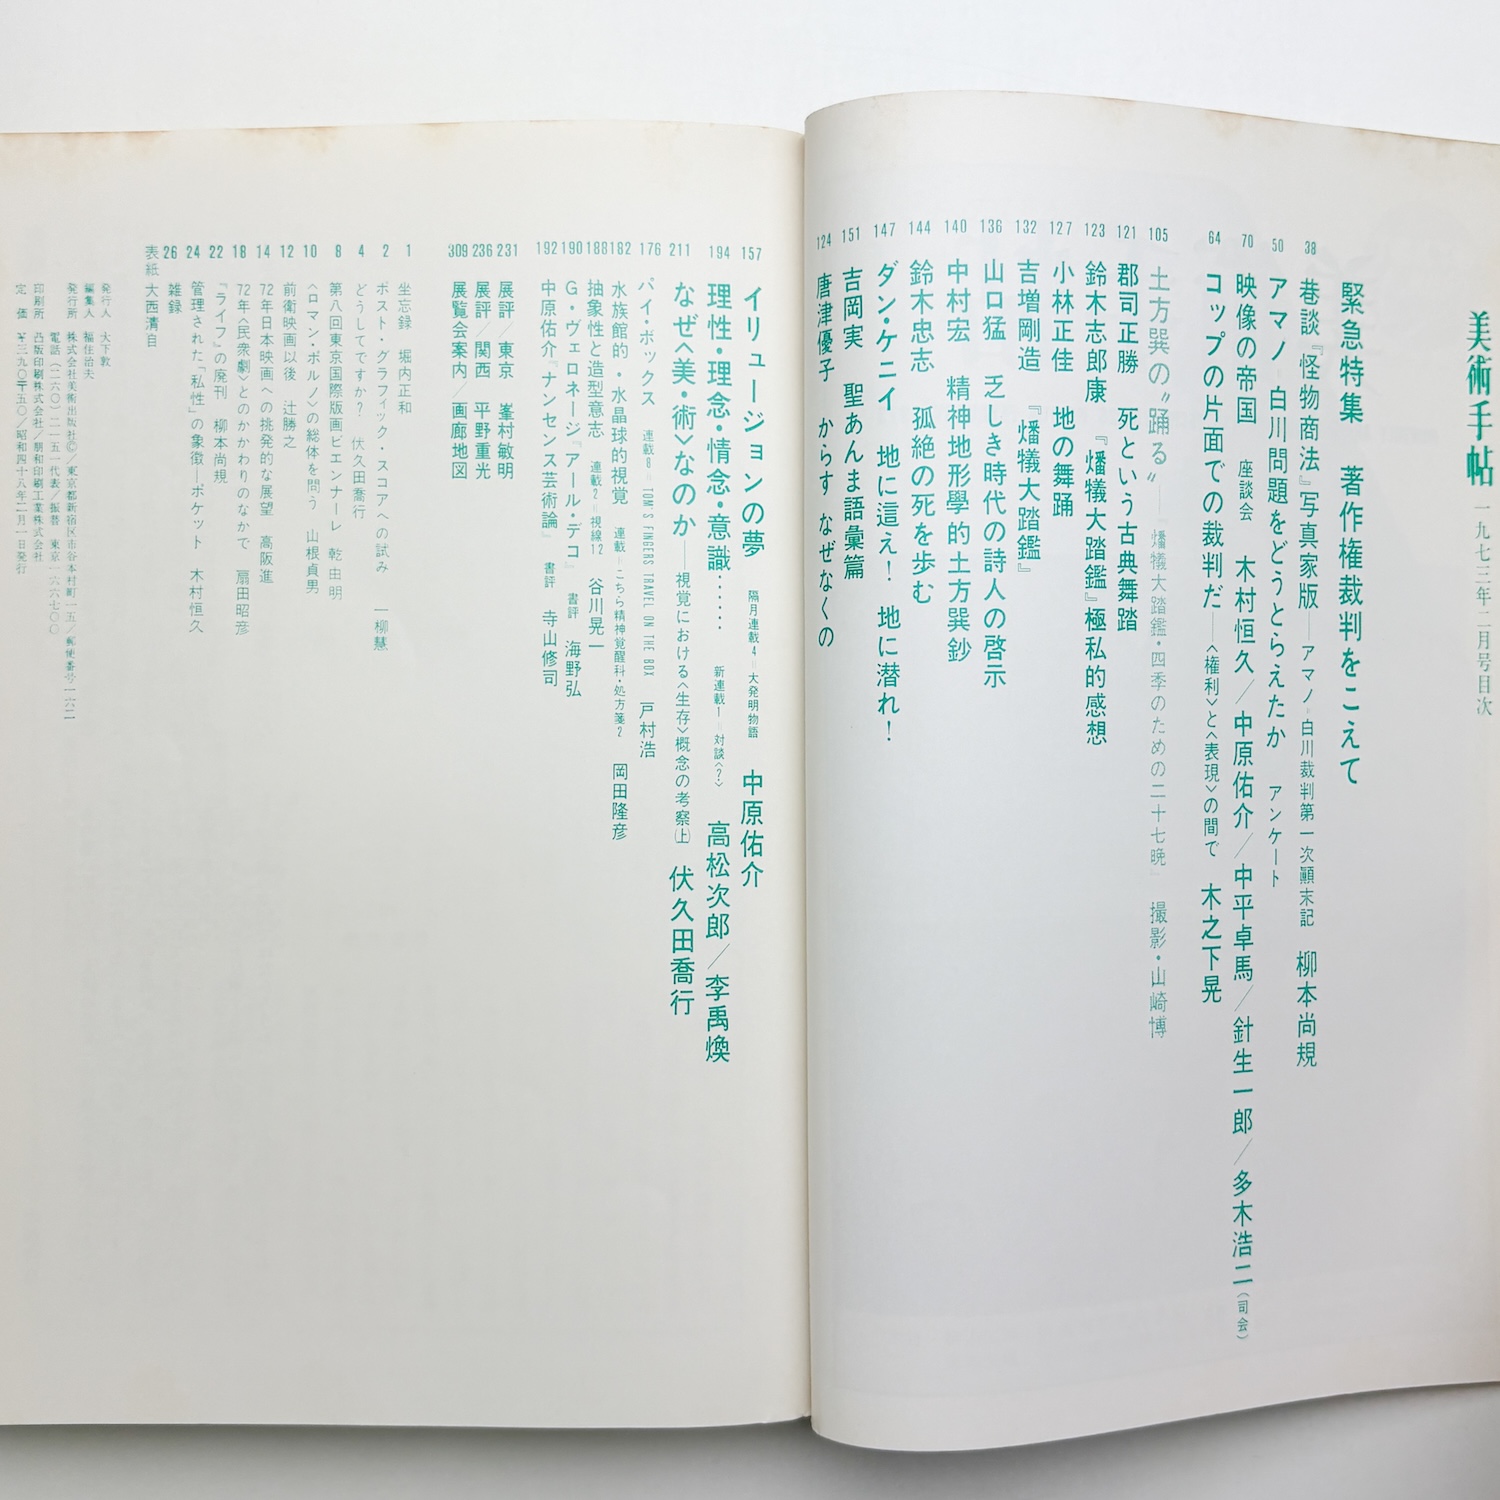 美術手帖 一九七三年二月号目次
緊急特集 著作権裁判をこえて
38 巷談『怪物商法』写真家版——アマノ=白川裁判第一次顚末記 柳本尚規
50 アマノ=白川問題をどうとらえたか アンケート
70 映像の帝国 座談会 木村恒久/中原佑介/中平卓馬/針生一郎/多木浩二(司会)
64 コップの片面での裁判だ——〈権利〉と〈表現〉の間で 木之下晃
105 土方巽の〝踊る〟——『燔犠大踏鑑・四季のための二十七晩』 撮影・山崎博
121 郡司正勝 死という古典舞踏
123 鈴木志郎康 『燔犠大踏鑑』極私的感想
127 小林正佳 地の舞踊
132 吉増剛造 『燔犠大踏鑑』
136 山口猛 乏しき時代の詩人の啓示
140 中村宏 精神地形學的土方巽鈔
144 鈴木忠志 孤絶の死を歩む
147 ダン・ケニイ 地に這え!地に潜れ!
151 吉岡実 聖あんま語彙篇
124 唐津優子 からす なぜなくの
157 イリュージョンの夢 隔月連載4=大発明物語 中原佑介
194 理性・理念・情念・意識…… 新連載1=対談〈?〉 高松次郎/李禹煥
211 なぜ〈美・術〉なのか——視覚における〈生存〉概念の考察(上) 伏久田喬行
176 パイ・ボックス 連載8=TOM'S FINGERS TRAVEL ON THE BOX 戸村浩
182 水族館的・水晶球的視覚 連載=こちら精神覚醒科・処方箋2 岡田隆彦
188 抽象性と造型意志 連載2=視線12 谷川晃一
190 G・ヴェロネージ『アール・デコ』 書評 海野弘
192 中原佑介『ナンセンス芸術論』 書評 寺山修司
231 展評/東京 峯村敏明
236 展評/関西 平野重光
309 展覧会案内/画廊地図
1 坐忘録 堀内正和
2 ポスト・グラフィック・スコアへの試み 一柳慧
4 どうしてですか? 伏久田喬行
8 第八回東京国際版画ビエンナーレ 乾由明
10 〈ロマン・ポルノ〉の総体を問う 山根貞男
12 前衛映画以後 辻勝之
14 72年日本映画への挑発的な展望 高阪進
18 72年〈民衆劇〉とのかかわりのなかで 扇田昭彦
22 『ライフ』の廃刊 柳本尚規
24 管理された「私性」の象徴—ポケット 木村恒久
26 雑録
表紙 大西清自
発行人 大下敦
編集人 福住治夫
発行所 株式会社美術出版社©/東京都新宿区市谷本村町一五/郵便番号一六二
電話(二六〇)二一五一代表/振替 東京一六六七〇〇
印刷所 凸版印刷株式会社/朋和印刷工業株式会社
定価 ¥三九〇〒五〇/昭和四十八年二月一日発行